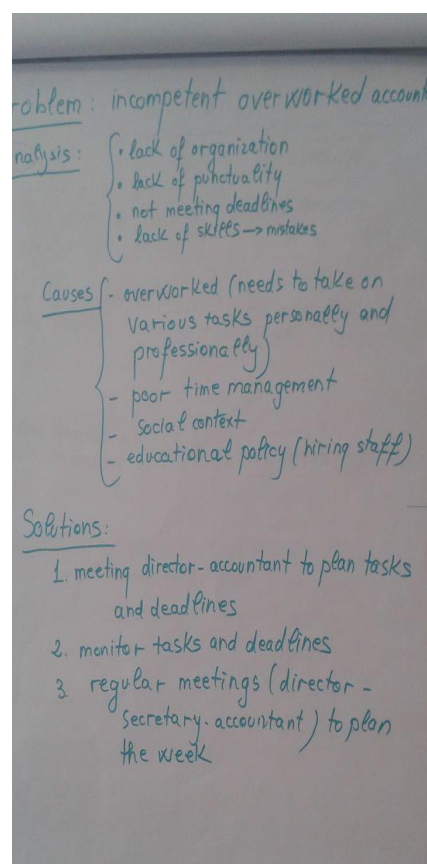 roblem: incompetent overworked account
nalysis:
• lack of organization
• lack of punctuality
• not meeting deadlines
• lack of skills → mistakes
Causes - overworked (needs to take on
various tasks personally and
professionally)
- poor time management
- social context
- educational policy (hiring staff)
Solutions:
1. meeting director-accountant to plan tasks
and deadlines
2. monitor tasks and deadlines
3. regular meetings (director-
secretary-accountant) to plan
the week